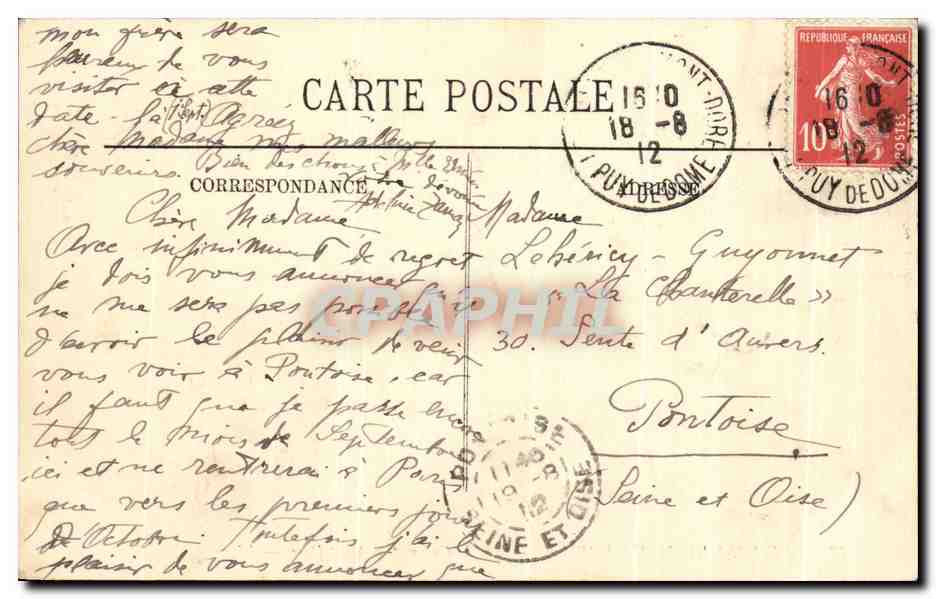 CARTE POSTALE
CORRESPONDANCE
ADRESSE
Chère Madame
Avec infiniment de regret
je dois vous annoncer qu'il
ne me sera pas possible
d'avoir le plaisir de venir
vous voir à Pontoise, car
il faut que je passe encore
tout le mois de Septembre
ici et ne rentrerai à Paris
que vers les premiers jours
d'Octobre. Toutefois j'ai le
plaisir de vous annoncer que
mon père sera
heureux de vous
visiter à cette
date-là (1 Sept.) Agréez
chère Madame mes meilleurs
souvenirs.
Bien des choses à
votre dévoué
Madame
Lehéricy-Guyonnet
"La Chanterelle"
30. Sente d'Auvers
Pontoise
(Seine et Oise)
MONT-DORE
16 10
18 -8
12
PUY DE DOME
REPUBLIQUE FRANÇAISE
10
POSTES
MONT-DORE
16 10
18 -8
12
PUY DE DOME
PONTOISE
19 -8
12
SEINE ET OISE
CPAPHIL